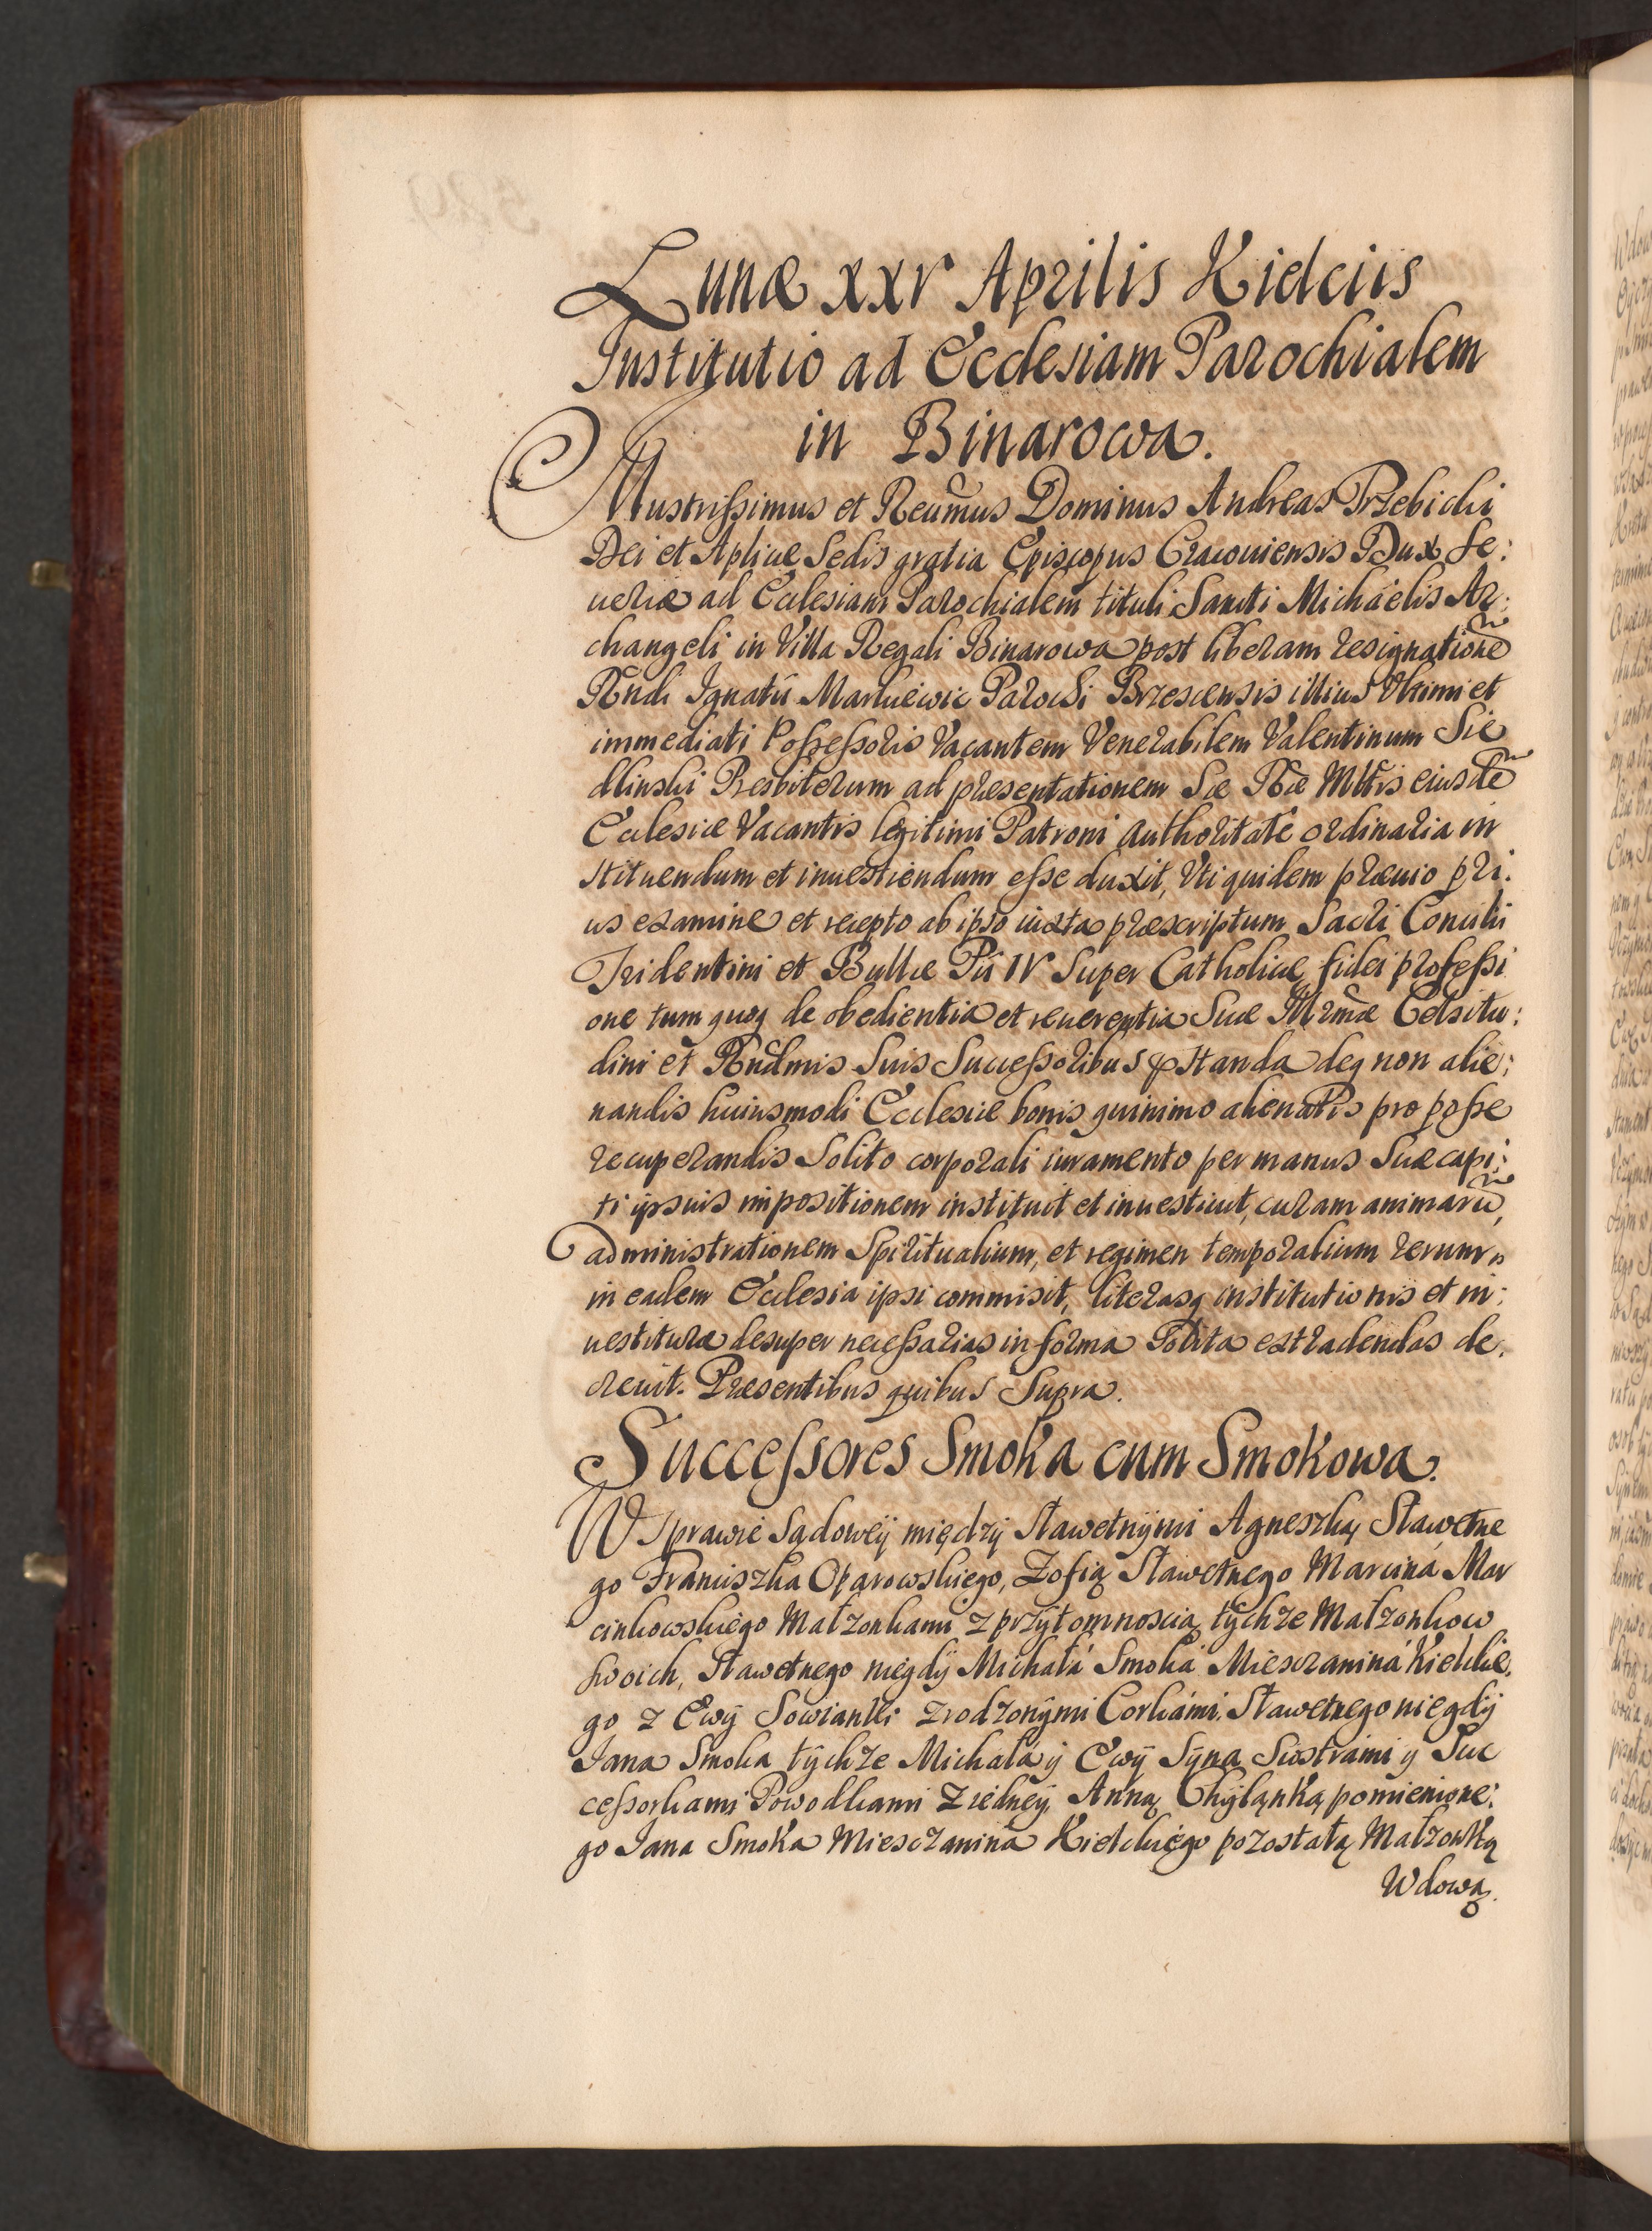 Lunæ XXV Aprilis Kielciis
Institutio ad Ecclesiam Parochialem
in Binarowa.
Illustrissimus et Reuͤmus Dominus Andreas Trzebicki
Dei et Aplicæ Sedis gratia Episcopus Cracouiensis Dux Se:
ueriæ ad Ecclesiam Parochialem tituli Sancti Michaëlis Ar:
changeli in Villa Regali Binarowa post liberam resignationē
Rndi Ignatii Markiewic Parochi Brzescensis illius Vltimi et
immediati Possessoris Vacantem Venerabilem Valentinum Sie
dlinski Presbiterum ad præsentationem Sæ Ræ Mttis eiusdē
Ecclesiæ Vacantis legitimi Patroni authoritate ordinaria in
stituendum et inuestiendum esse duxit, Vti quidem præuio pri:
us examine et recepto ab ipso iuxta præscriptum Sacri Concilii
Tridentini et Bullæ Pii IV Super Catholicæ fidei professi
one tum quoq de obedientia et reuerentia Suæ Illrmæ Celsitu:
dini et Rndmis Suis Successoribus pstanda deq non alie:
nandis huiusmodi Ecclesiæ bonis quinimo alienatis pro posse
recuperandis Solito corporali iuramento per manus Suæ capi:
ti ipsuis impositionem instituit et inuestiuit, curam animarū,
administrationem Spiritualium, et regimen temporalium rerum
in eadem Ecclesia ipsi commisit, literasq institutionis et in:
uestituræ desuper necessarias in forma Solita extradendas de:
creuit. Præsentibus quibus Supra.
Successores Smoka cum Smokowa.
W Sprawie Sądoweÿ międzÿ Sławetnÿmi Agneszką Sławetne
go Franciszka Oparowskiego, Zofią Sławetnego Marciná Mar
cinkowskiego Małzonkami z przÿtomnoscią tÿchze Małzonkow
swoich, Sławetnego niegdÿ Michałá Smoká Miesczaniná Kielckie:
go z Ewÿ Sowianki zrodzonÿmi Corkámi, Sławetnego niegdÿ
Jana Smoka tÿchze Michałá ÿ Ewÿ Sÿna Siostrámi y Suc
cessorkami Powodkami z iedneÿ Anną Chÿląnką pomienione:
go Jana Smoka Miesczanina Kielckiego pozostałą Małzonką
Wdową.